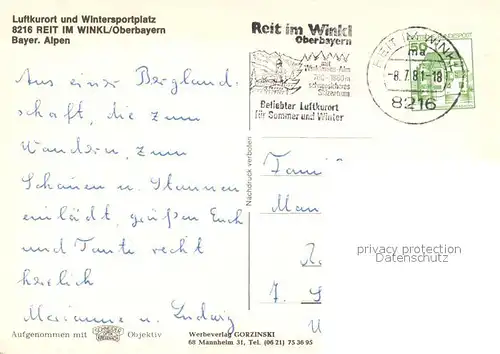 Luftkurort und Wintersportplatz
8216 REIT IM WINKL/Oberbayern
Bayer. Alpen
Aus einer Bergland-
schaft, die zum
Wandern, zum
Schauen u. Staunen
einlädt, grüßen Euch
und Tante recht
herzlich
Marianne u. Ludwig
Aufgenommen mit
Objektiv
Werbeverlag GORZINSKI
68 Mannheim 31, Tel. (06 21) 75 36 95
Nachdruck verboten
Reit im Winkl
Oberbayern
Beliebter Luftkurort
für Sommer und Winter
REIT IM WINKL
ma
-8.7.81-18
8216
50
Fami
Man
privacy protection
Datenschutz